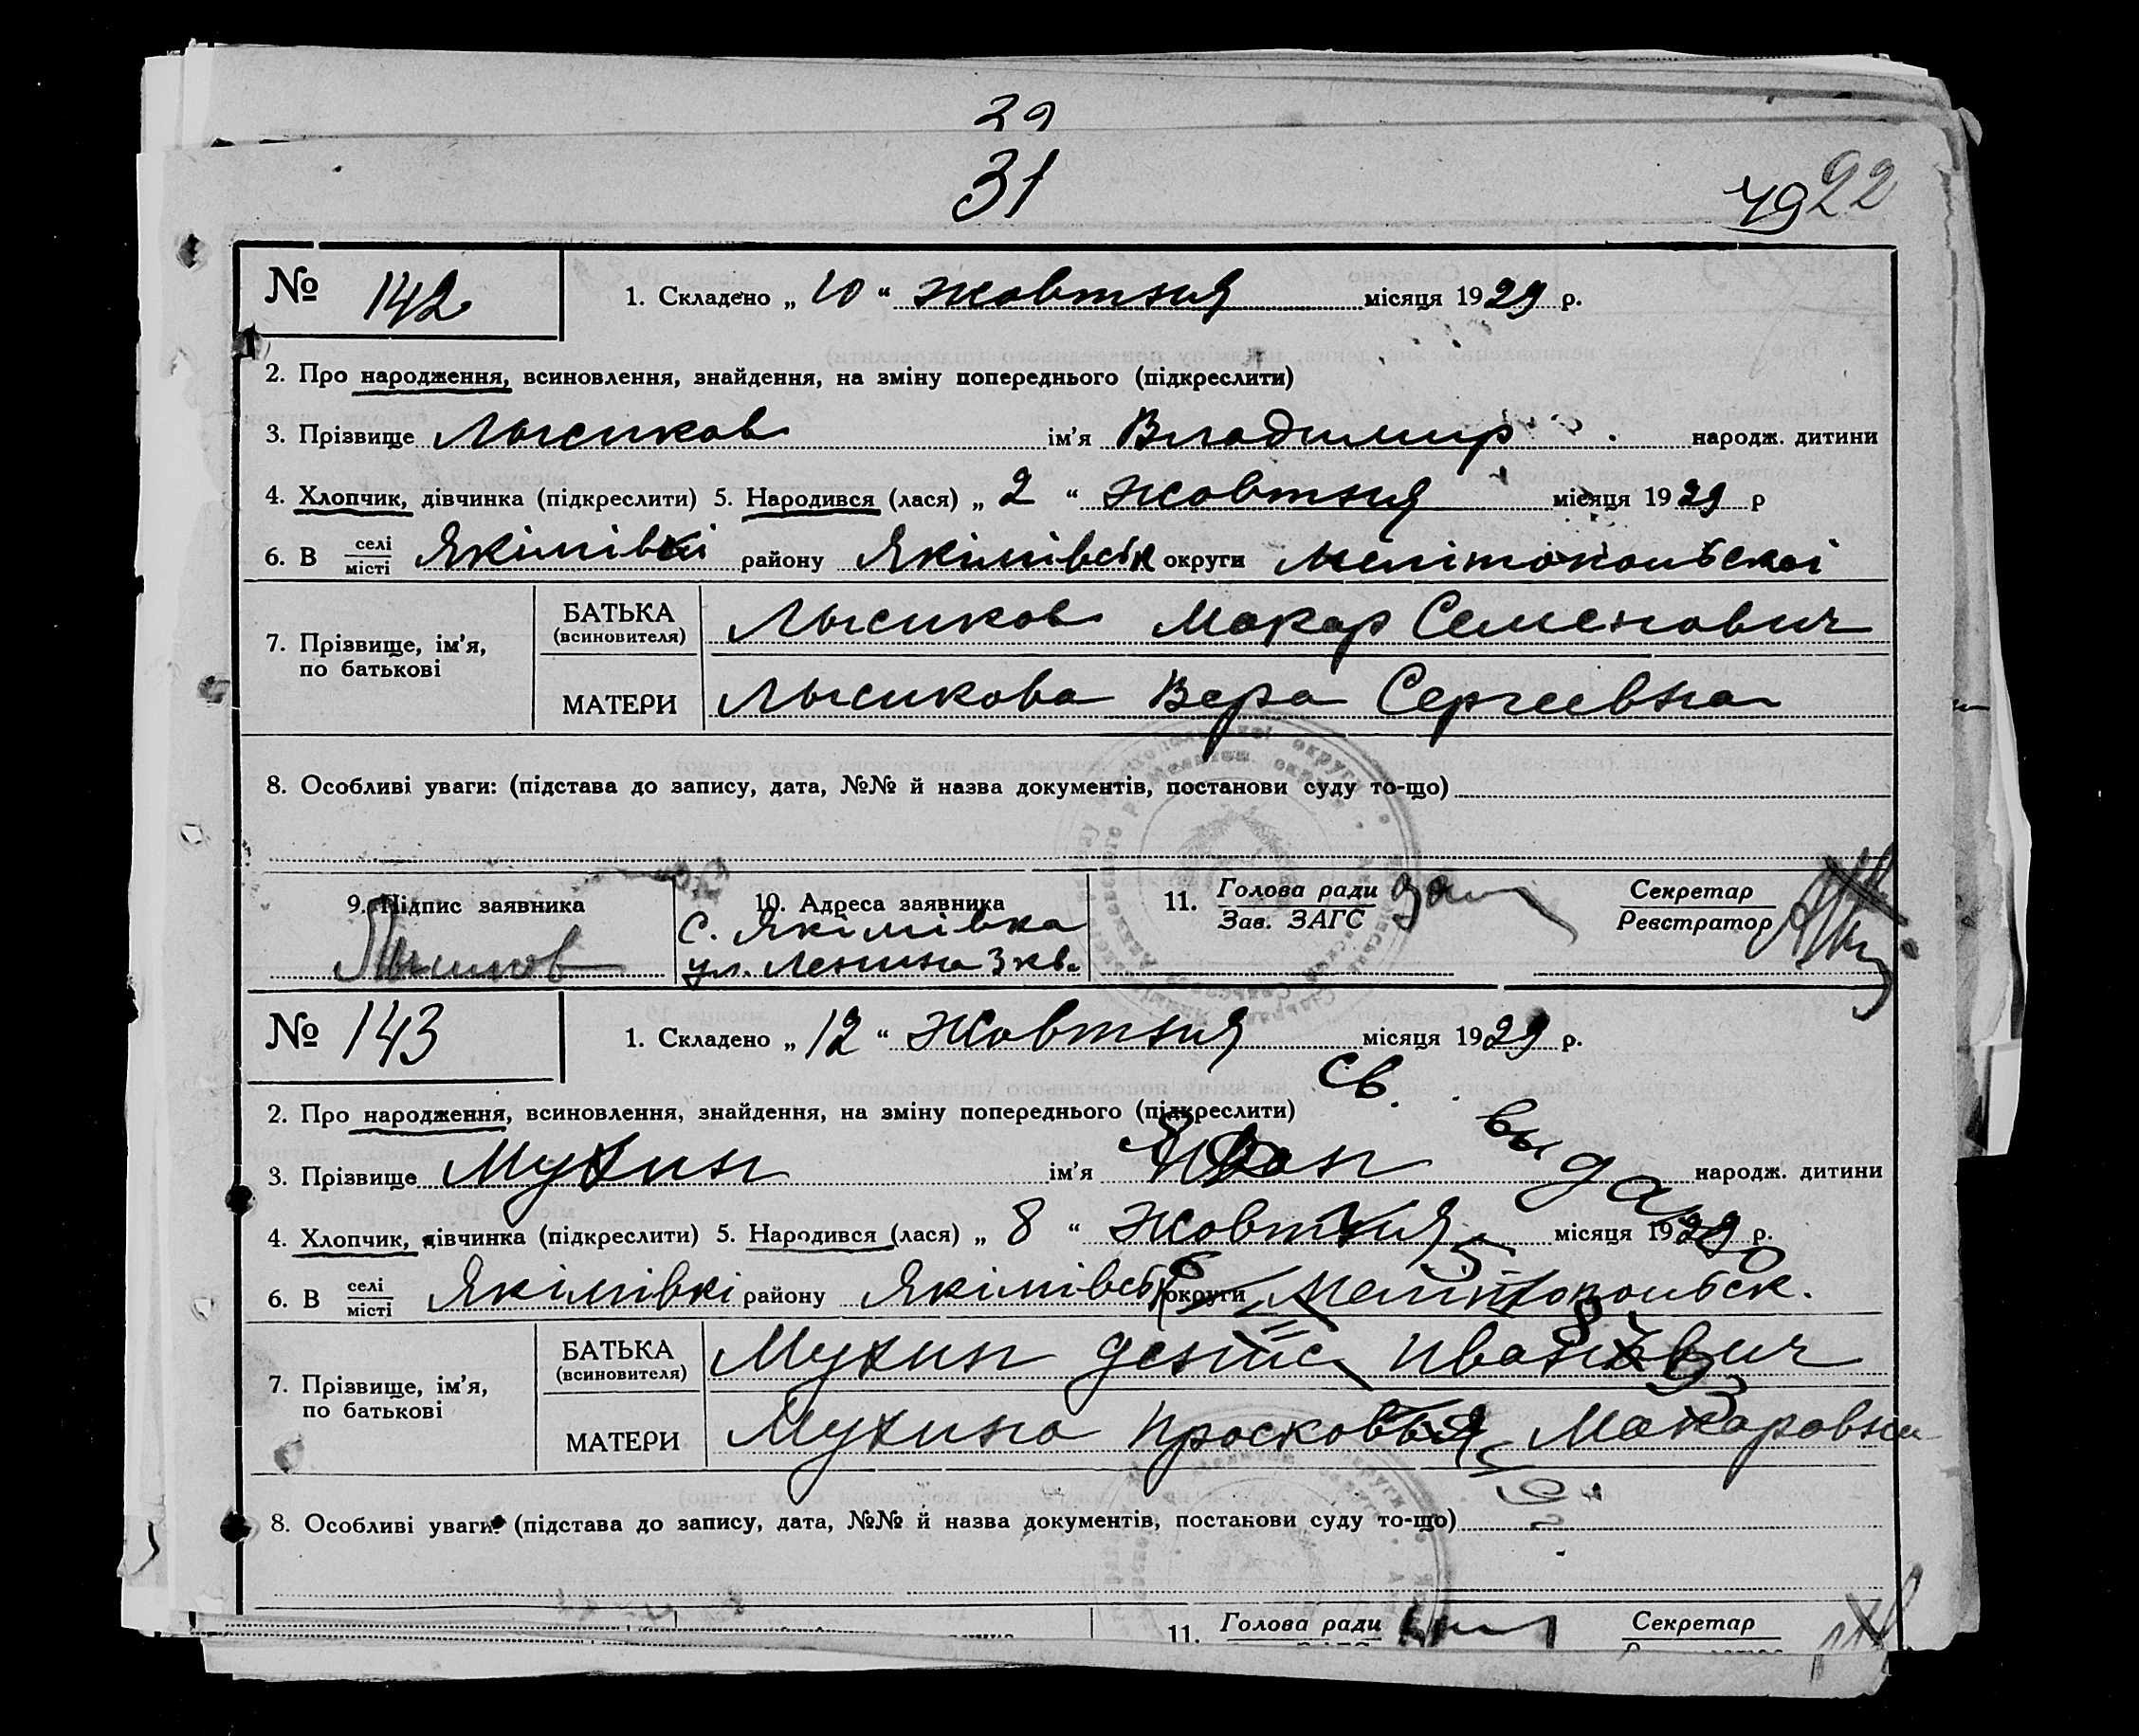 29
31
79 92
№ 142
1. Складено „ 10 “ жовтня місяця 1929 р.
2. Про народження, всиновлення, знайдення, на зміну попереднього (підкреслити)
3. Прізвище Лысиков ім’я Владимир народж. дитини
4. Хлопчик, дівчинка (підкреслити) 5. Народився (лася) „ 2 “ жовтня місяця 1929 р
6. В селі місті Якімівкі району Якімівськ округи Мелітопольскоі
7. Прізвище, ім’я, по батькові
БАТЬКА (всиновителя) Лысиков Макар Семенович
МАТЕРИ Лысикова Вера Сергеевна
8. Особливі уваги: (підстава до запису, дата, №№ й назва документів, постанови суду то-що)
9. Підпис заявника 10. Адреса заявника 11. Голова ради Зав. ЗАГС Секретар Реєстратор
Лысиков
с. Якімівка
ул. Ленина 3 кв.
№ 143
1. Складено „ 12 “ Жовтня місяця 1929 р.
Св. выдано
2. Про народження, всиновлення, знайдення, на зміну попереднього (підкреслити)
3. Прізвище Мухин ім’я Иван народж. дитини
4. Хлопчик, дівчинка (підкреслити) 5. Народився (лася) „ 8 “ Жовтня місяця 1929 р.
6. В селі місті Якімівкі району Якімівськ округи Мелітопольск.
7. Прізвище, ім’я, по батькові
БАТЬКА (всиновителя) Мухин Денис Иванович
МАТЕРИ Мухина Просковья Макаровна
8. Особливі уваги: (підстава до запису, дата, №№ й назва документів, постанови суду то-що)
11. Голова ради Секретар